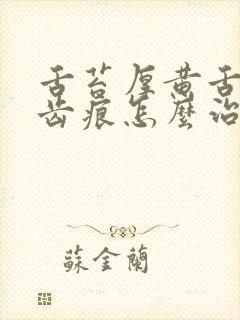 舌苔厚黄舌
齿痕怎麼治
蘇金蘭